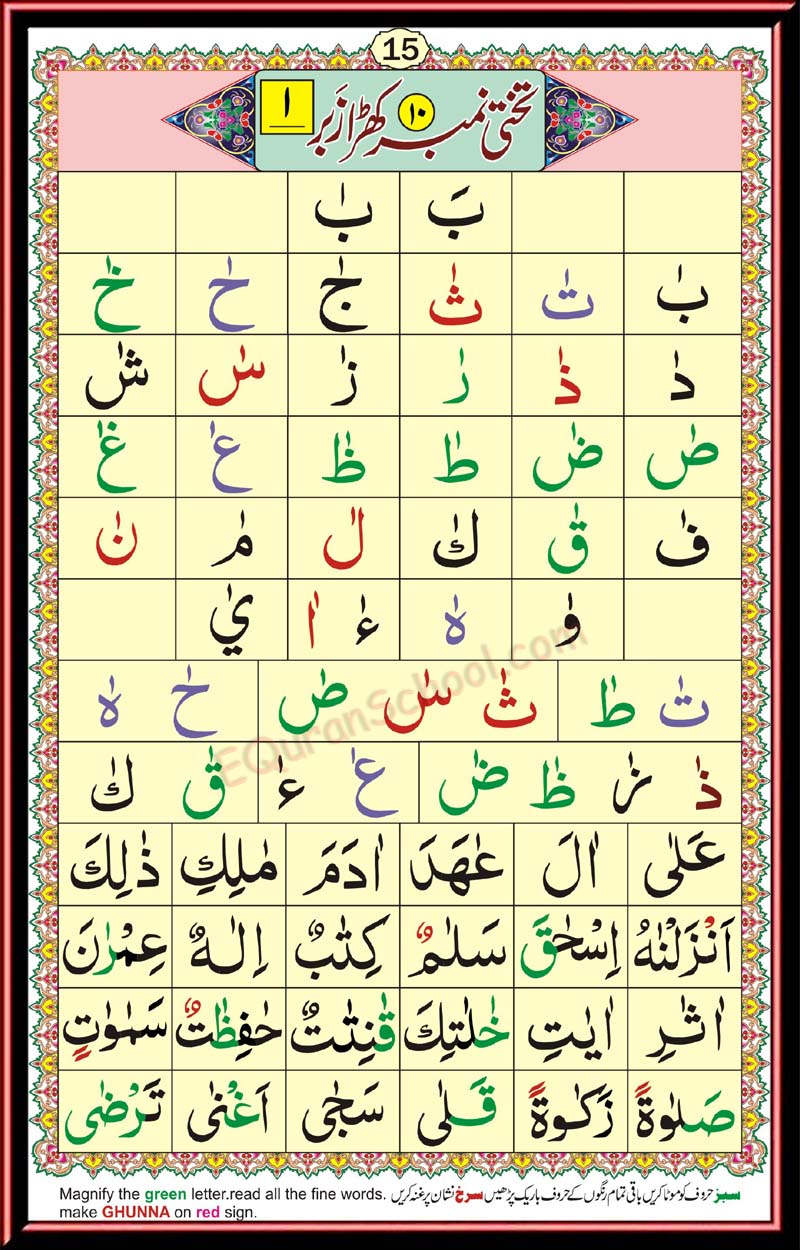 15
تختی نمبر ۱۰ کھڑا زبر ا
بَ بٰ
بٰ تٰ ثٰ جٰ حٰ خٰ
دٰ ذٰ رٰ زٰ سٰ شٰ
صٰ ضٰ طٰ ظٰ عٰ غٰ
فٰ قٰ كٰ لٰ مٰ نٰ
وٰ هٰ ءٰ اٰ يٰ
تٰ طٰ ثٰ سٰ صٰ حٰ هٰ
ذٰ زٰ ظٰ ضٰ عٰ ءٰ قٰ كٰ
عَلٰى اٰلَ عٰهَدَ اٰدَمَ مٰلِكِ ذٰلِكَ
اَنْزَلْنٰهُ اِسْحٰقَ سَلٰمٌ كِتٰبٌ اِلٰهٌ عِمْرٰنَ
اٰثٰرِ اٰيٰتِ خٰلٰتِكَ قٰنِتٰتٌ حٰفِظٰتٌ سَمٰوٰتٍ
صَلٰوةً زَكٰوةً قَلٰى سَجٰى اَغْنٰى تَرْضٰى
EQuranSchool.com
سبز حروف کو موٹا کریں باقی تمام رنگوں کے حروف باریک پڑھیں سرخ نشان پر غنہ کریں
Magnify the green letter.read all the fine words.
make GHUNNA on red sign.